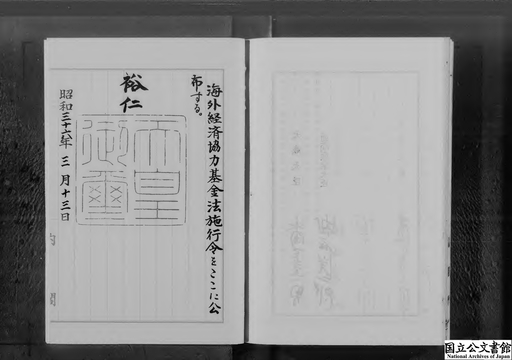 海外経済協力基金法施行令をここに公
布する。
裕仁
天皇
御璽
昭和三十六年三月十三日
内閣
国立公文書館
National Archives of Japan